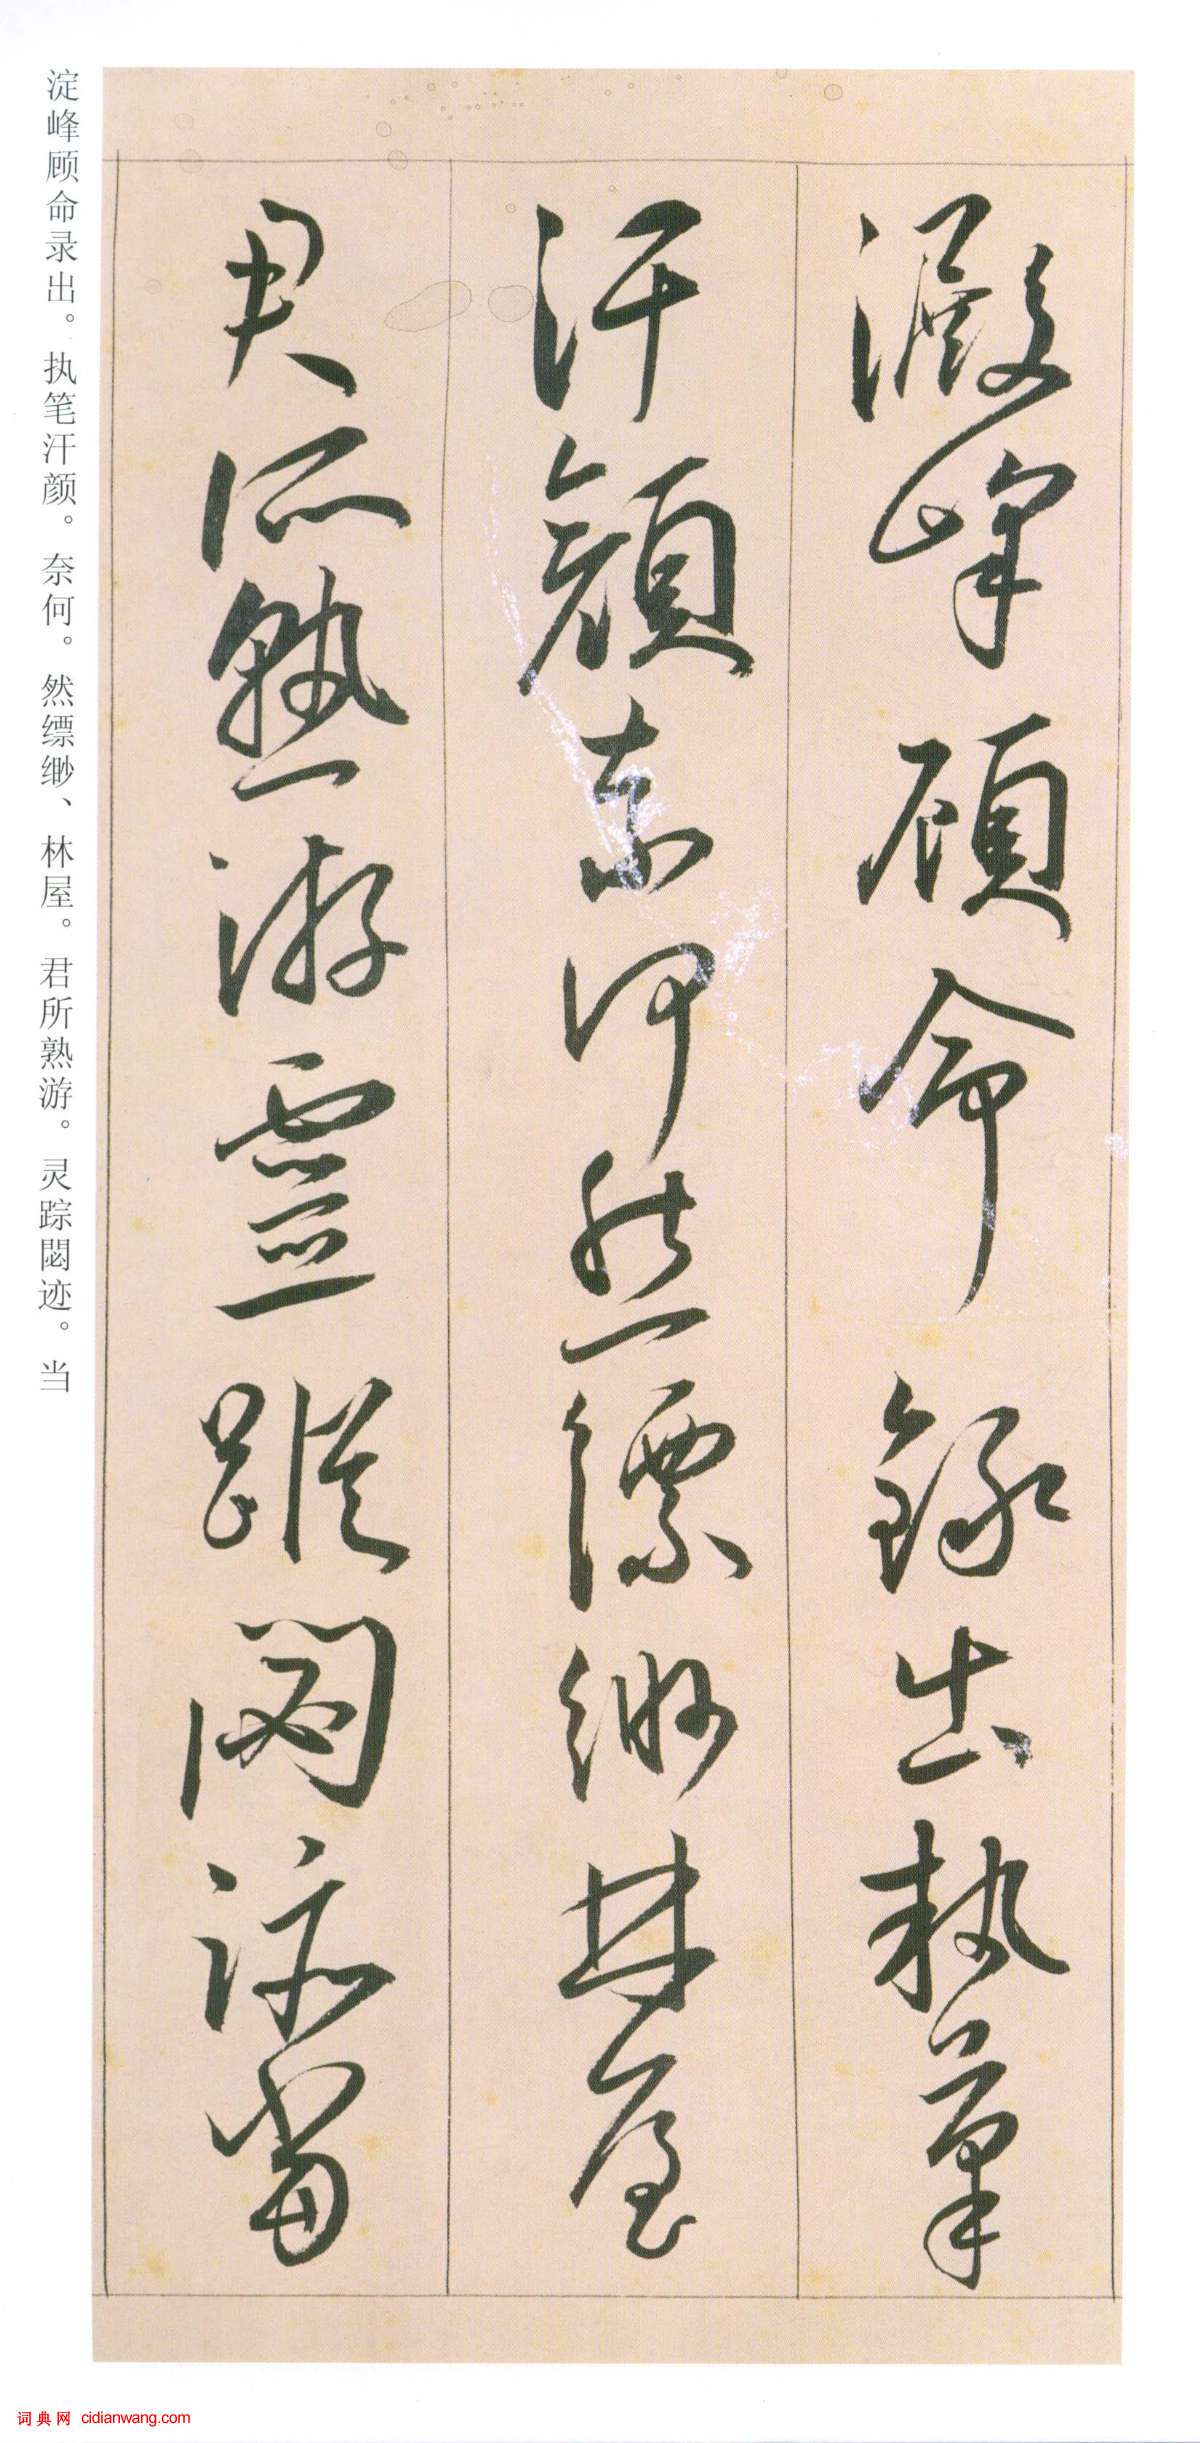 澱峰顧命錄出執筆
汗顏柰何然縹緲林屋
君所熟游靈蹤閟迹當
淀峰顾命录出。执笔汗颜。奈何。然缥缈、林屋。君所熟游。灵踪閟迹。当
词典网 cidianwang.com